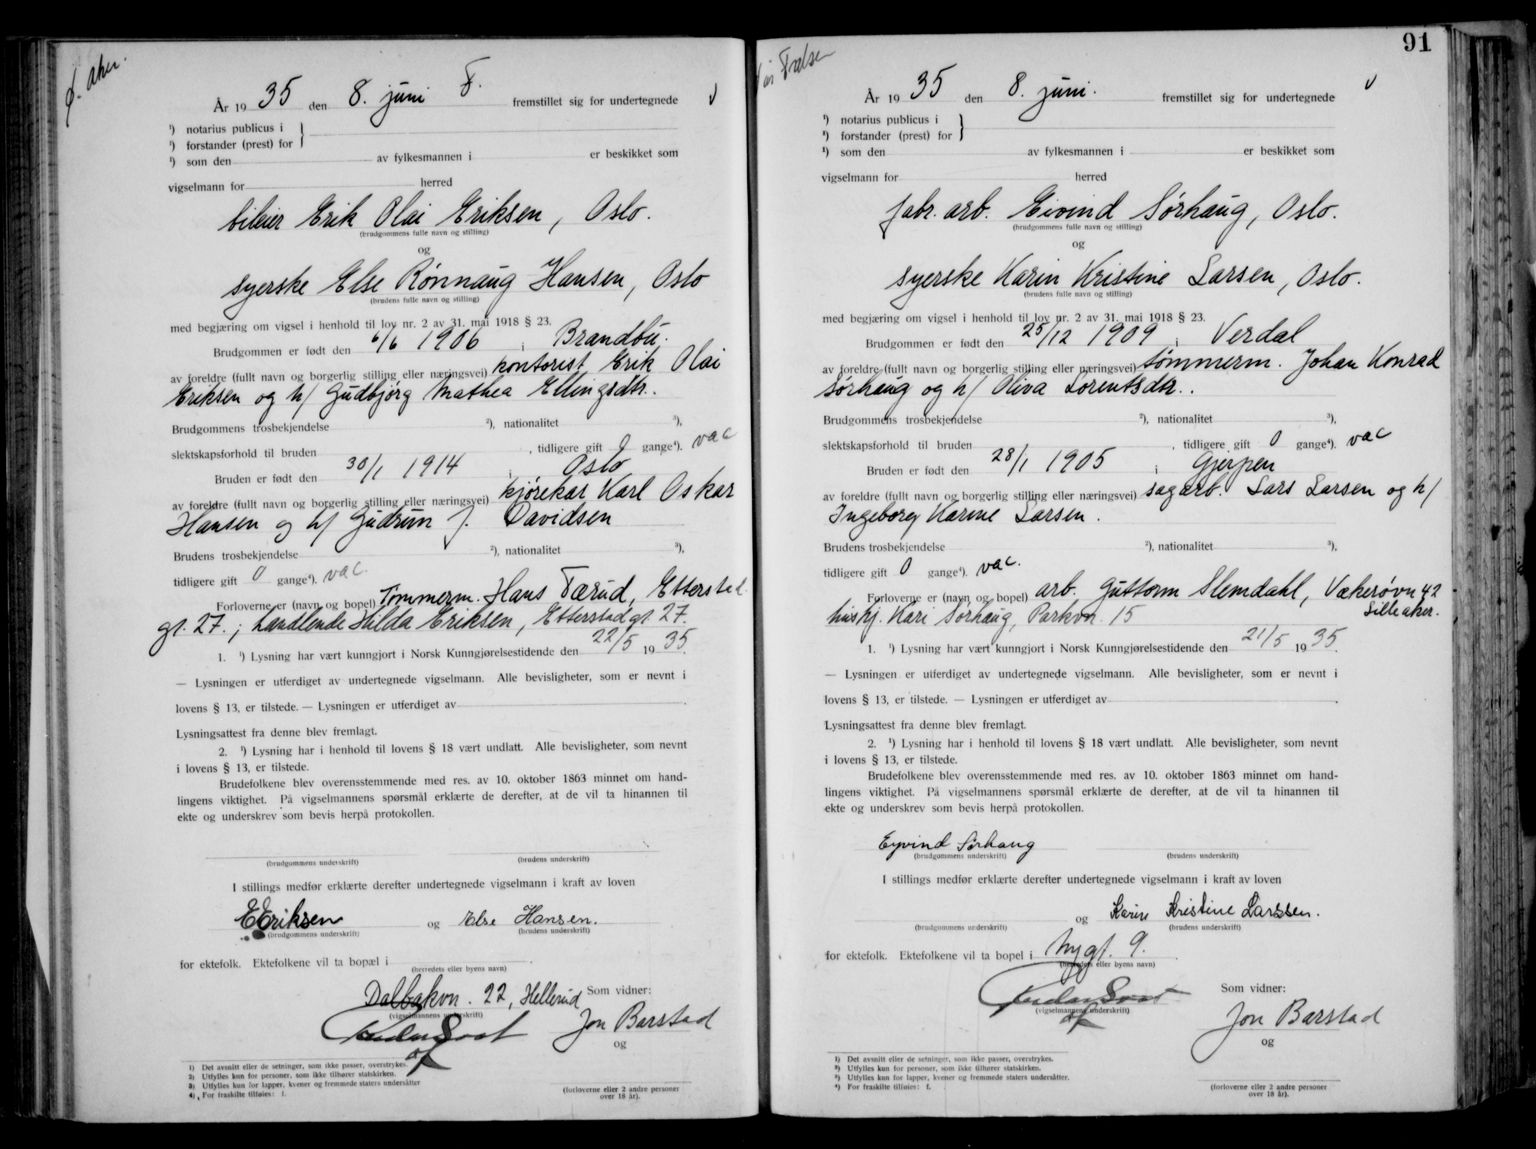 ø. Aker.
År 1935 den 8. juni F. fremstillet sig for undertegnede
¹) notarius publicus i
¹) forstander (prest) for
¹) som den av fylkesmannen i er beskikket som
vigselmann for herred
bileier Erik Olai Eriksen, Oslo.
(brudgommens fulle navn og stilling)
og
syerske Else Rønnaug Hansen, Oslo
(brudens fulle navn og stilling)
med begjæring om vigsel i henhold til lov nr. 2 av 31. mai 1918 § 23.
Brudgommen er født den 6/6 1906 i Brandbu.
av foreldre (fullt navn og borgerlig stilling eller næringsvei) kontorist Erik Olai
Eriksen og h/ Gudbjørg Mathea Ellingsdtr.
Brudgommens trosbekjendelse ²), nationalitet ³),
slektskapsforhold til bruden , tidligere gift 0 gange⁴). vac
Bruden er født den 30/1 1914 i Oslo
av foreldre (fullt navn og borgerlig stilling eller næringsvei) kjørekar Karl Oskar
Hansen og h/ Gudrun J. Davidsen
Brudens trosbekjendelse ²), nationalitet ³),
tidligere gift 0 gange⁴). vac.
Forloverne er (navn og bopel) Tømmerm. Hans Tærud, Etterstad
gt. 27.; handlende Hilda Eriksen, Etterstadgt 27.
1. ¹) Lysning har vært kunngjort i Norsk Kunngjørelsestidende den 22/5 1935.
— Lysningen er utferdiget av undertegnede vigselmann. Alle bevisligheter, som er nevnt i
lovens § 13, er tilstede. — Lysningen er utferdiget av
Lysningsattest fra denne blev fremlagt.
2. ¹) Lysning har i henhold til lovens § 18 vært undlatt. Alle bevisligheter, som nevnt
i lovens § 13, er tilstede.
Brudefolkene blev overensstemmende med res. av 10. oktober 1863 minnet om hand-
lingens viktighet. På vigselmannens spørsmål erklærte de derefter, at de vil ta hinannen til
ekte og underskrev som bevis herpå protokollen.
(brudgommens underskrift) (brudens underskrift)
I stillings medfør erklærte derefter undertegnede vigselmann i kraft av loven
E Eriksen og Else Hansen.
(brudgommens underskrift) (brudens underskrift)
for ektefolk. Ektefolkene vil ta bopæl i
(herredets eller byens navn)
Dalbakvn. 22, Hellerud Som vidner:
(vigselmannens underskrift)
Jon Barstad
og
¹) Det avsnitt eller de setninger, som ikke passer, overstrykes.
²) Utfylles kun for personer, som ikke tilhører statskirken.
³) Utfylles kun for lapper, kvener og fremmede staters undersåtter
⁴) For fraskilte tilføies: f.
(forloverne eller 2 andre personer
over 18 år).
91
År 1935 den 8. juni. fremstillet sig for undertegnede
¹) notarius publicus i
¹) forstander (prest) for
¹) som den av fylkesmannen i er beskikket som
vigselmann for herred
fabr. arb. Eivind Sørhaug, Oslo.
(brudgommens fulle navn og stilling)
og
syerske Karin Kristine Larsen, Oslo.
(brudens fulle navn og stilling)
med begjæring om vigsel i henhold til lov nr. 2 av 31. mai 1918 § 23.
Brudgommen er født den 25/12 1909 i Verdal
av foreldre (fullt navn og borgerlig stilling eller næringsvei) tømmerm. Johan Konrad
Sørhaug og h/ Oliva Lorentsdtr..
Brudgommens trosbekjendelse ²), nationalitet ³),
slektskapsforhold til bruden , tidligere gift 0 gange⁴). vac
Bruden er født den 28/1 1905 i Gjerpen
av foreldre (fullt navn og borgerlig stilling eller næringsvei) sagarb. Lars Larsen og h/
Ingeborg Karine Larsen.
Brudens trosbekjendelse ²), nationalitet ³),
tidligere gift 0 gange⁴). vac.
Forloverne er (navn og bopel) arb. Guttorm Slemdahl, Vækerøvn 42
Lilleaker.
huskj. Kari Sørhaug, Parkvn. 15
1. ¹) Lysning har vært kunngjort i Norsk Kunngjørelsestidende den 21/5 1935.
— Lysningen er utferdiget av undertegnede vigselmann. Alle bevisligheter, som er nevnt i
lovens § 13, er tilstede. — Lysningen er utferdiget av
Lysningsattest fra denne blev fremlagt.
2. ¹) Lysning har i henhold til lovens § 18 vært undlatt. Alle bevisligheter, som nevnt
i lovens § 13, er tilstede.
Brudefolkene blev overensstemmende med res. av 10. oktober 1863 minnet om hand-
lingens viktighet. På vigselmannens spørsmål erklærte de derefter, at de vil ta hinannen til
ekte og underskrev som bevis herpå protokollen.
Eyvind Sørhaug
(brudgommens underskrift) (brudens underskrift)
I stillings medfør erklærte derefter undertegnede vigselmann i kraft av loven
og Karin Kristine Larssen.
(brudgommens underskrift) (brudens underskrift)
for ektefolk. Ektefolkene vil ta bopel i Nygt. 9.
(herredets eller byens navn)
Som vidner:
(vigselmannens underskrift)
Jon Barstad
og
¹) Det avsnitt eller de setninger, som ikke passer, overstrykes.
²) Utfylles kun for personer, som ikke tilhører statskirken.
³) Utfylles kun for lapper, kvener og fremmede staters undersåtter.
⁴) For fraskilte tilføies: f.
(forloverne eller 2 andre personer
over 18 år).